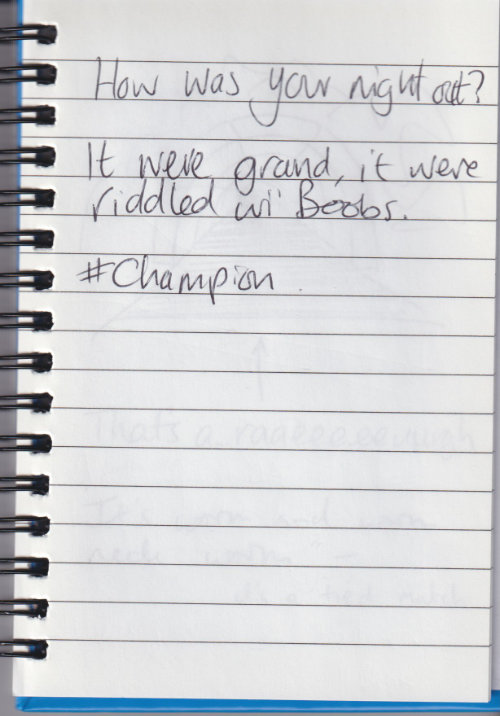 How was your night out?
It were grand, it were
riddled wi' Boobs.
#Champion
That's a raaeeeeeuuugh